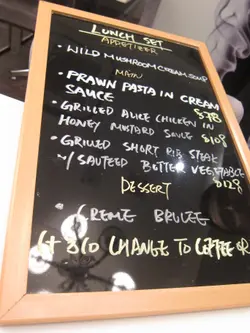 LUNCH SET
APPETIZER
• WILD MUSHROOM CREAM SOUP
MAIN
• PRAWN PASTA IN CREAM
SAUCE $98
• GRILLED CHICKEN IN
HONEY MUSTARD SAUCE $108
• GRILLED SHORT RIB STEAK
W/ SAUTEED BUTTER VEGETABLE
$128
DESSERT
• CREME BRULEE
(+ $10 CHANGE TO COFFEE OR